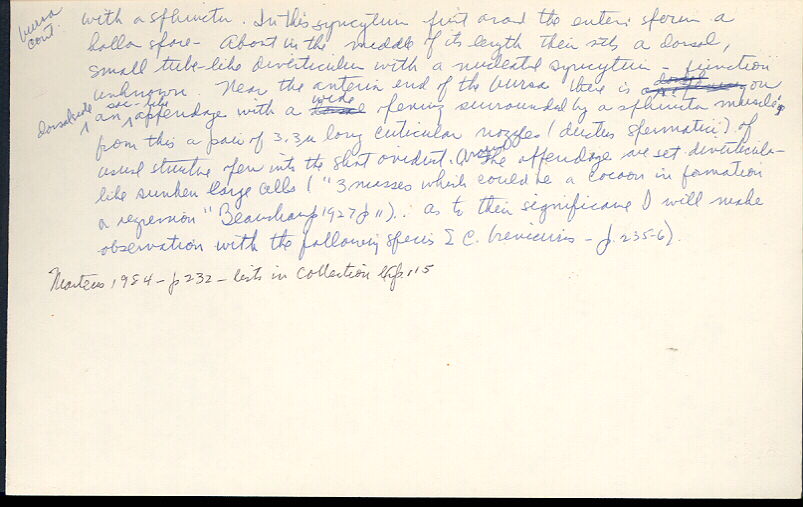 bursa cont.
with a sphincter. In this syncytium first around the enteric sperm a
hollow space. About in the middle of its length there sits a dorsal,
small tube-like diverticulum with a nucleated syncytium - function
unknown. Near the anterior end of the bursa there is on
dorsal side an sac-like appendage with a wide opening surrounded by a sphincter muscle;
from this a pair of 3.3µ long cuticular nozzles (ductus spermatici) of
usual structure open into the short oviduct. Around the appendage are set diverticula-
like sunken large cells ( "3 masses which could be a cocoon in formation
a regression" Beauchamp 1927 p 11). : as to their significance I will make
observation with the following species E C. brevicirris - p. 235-6).
Martens 1984 - p 232 - lists in Collection 115